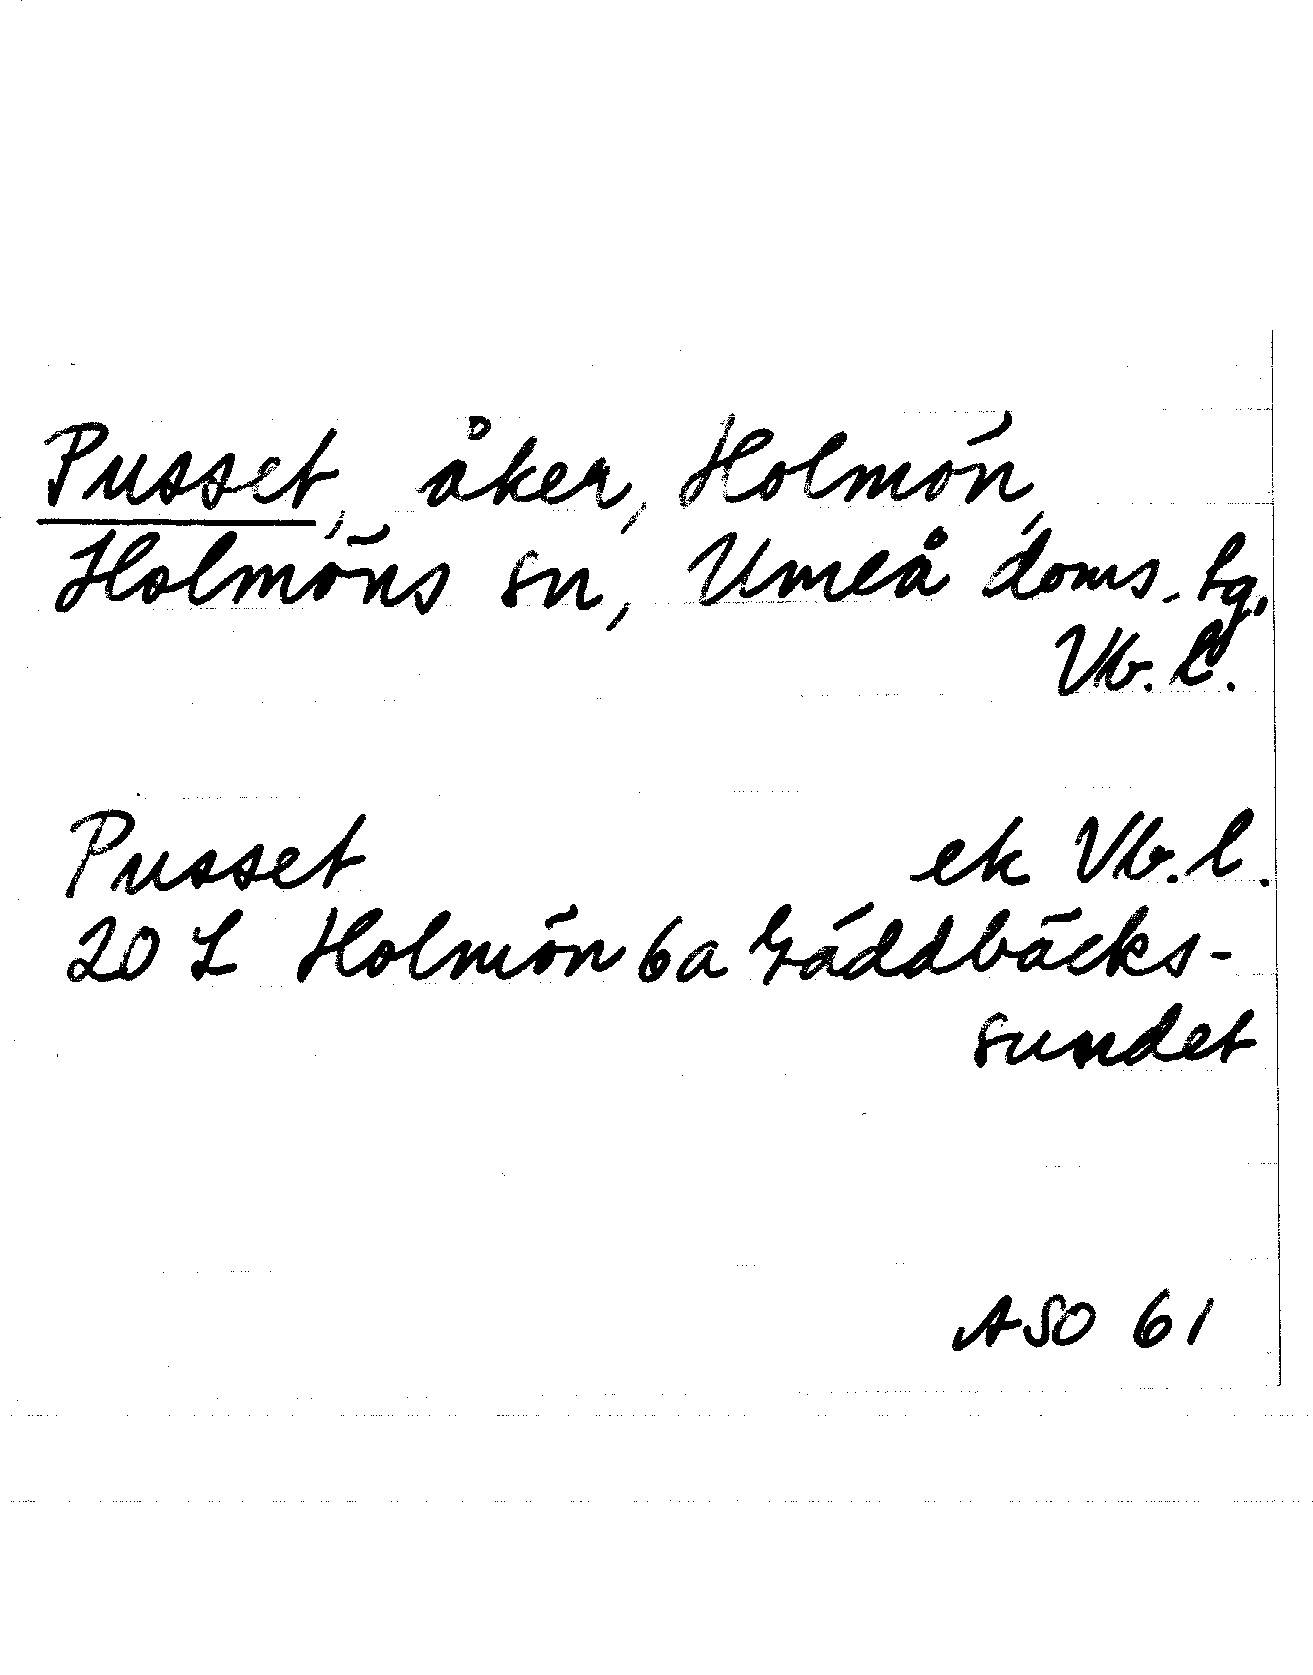 Pusset, åker, Holmön,
Holmöns sn, Umeå doms. tg,
Vb. l.
Pusset ek Vb. l.
20 L Holmön 6a Gäddbäcks-
sundet
ASO 61